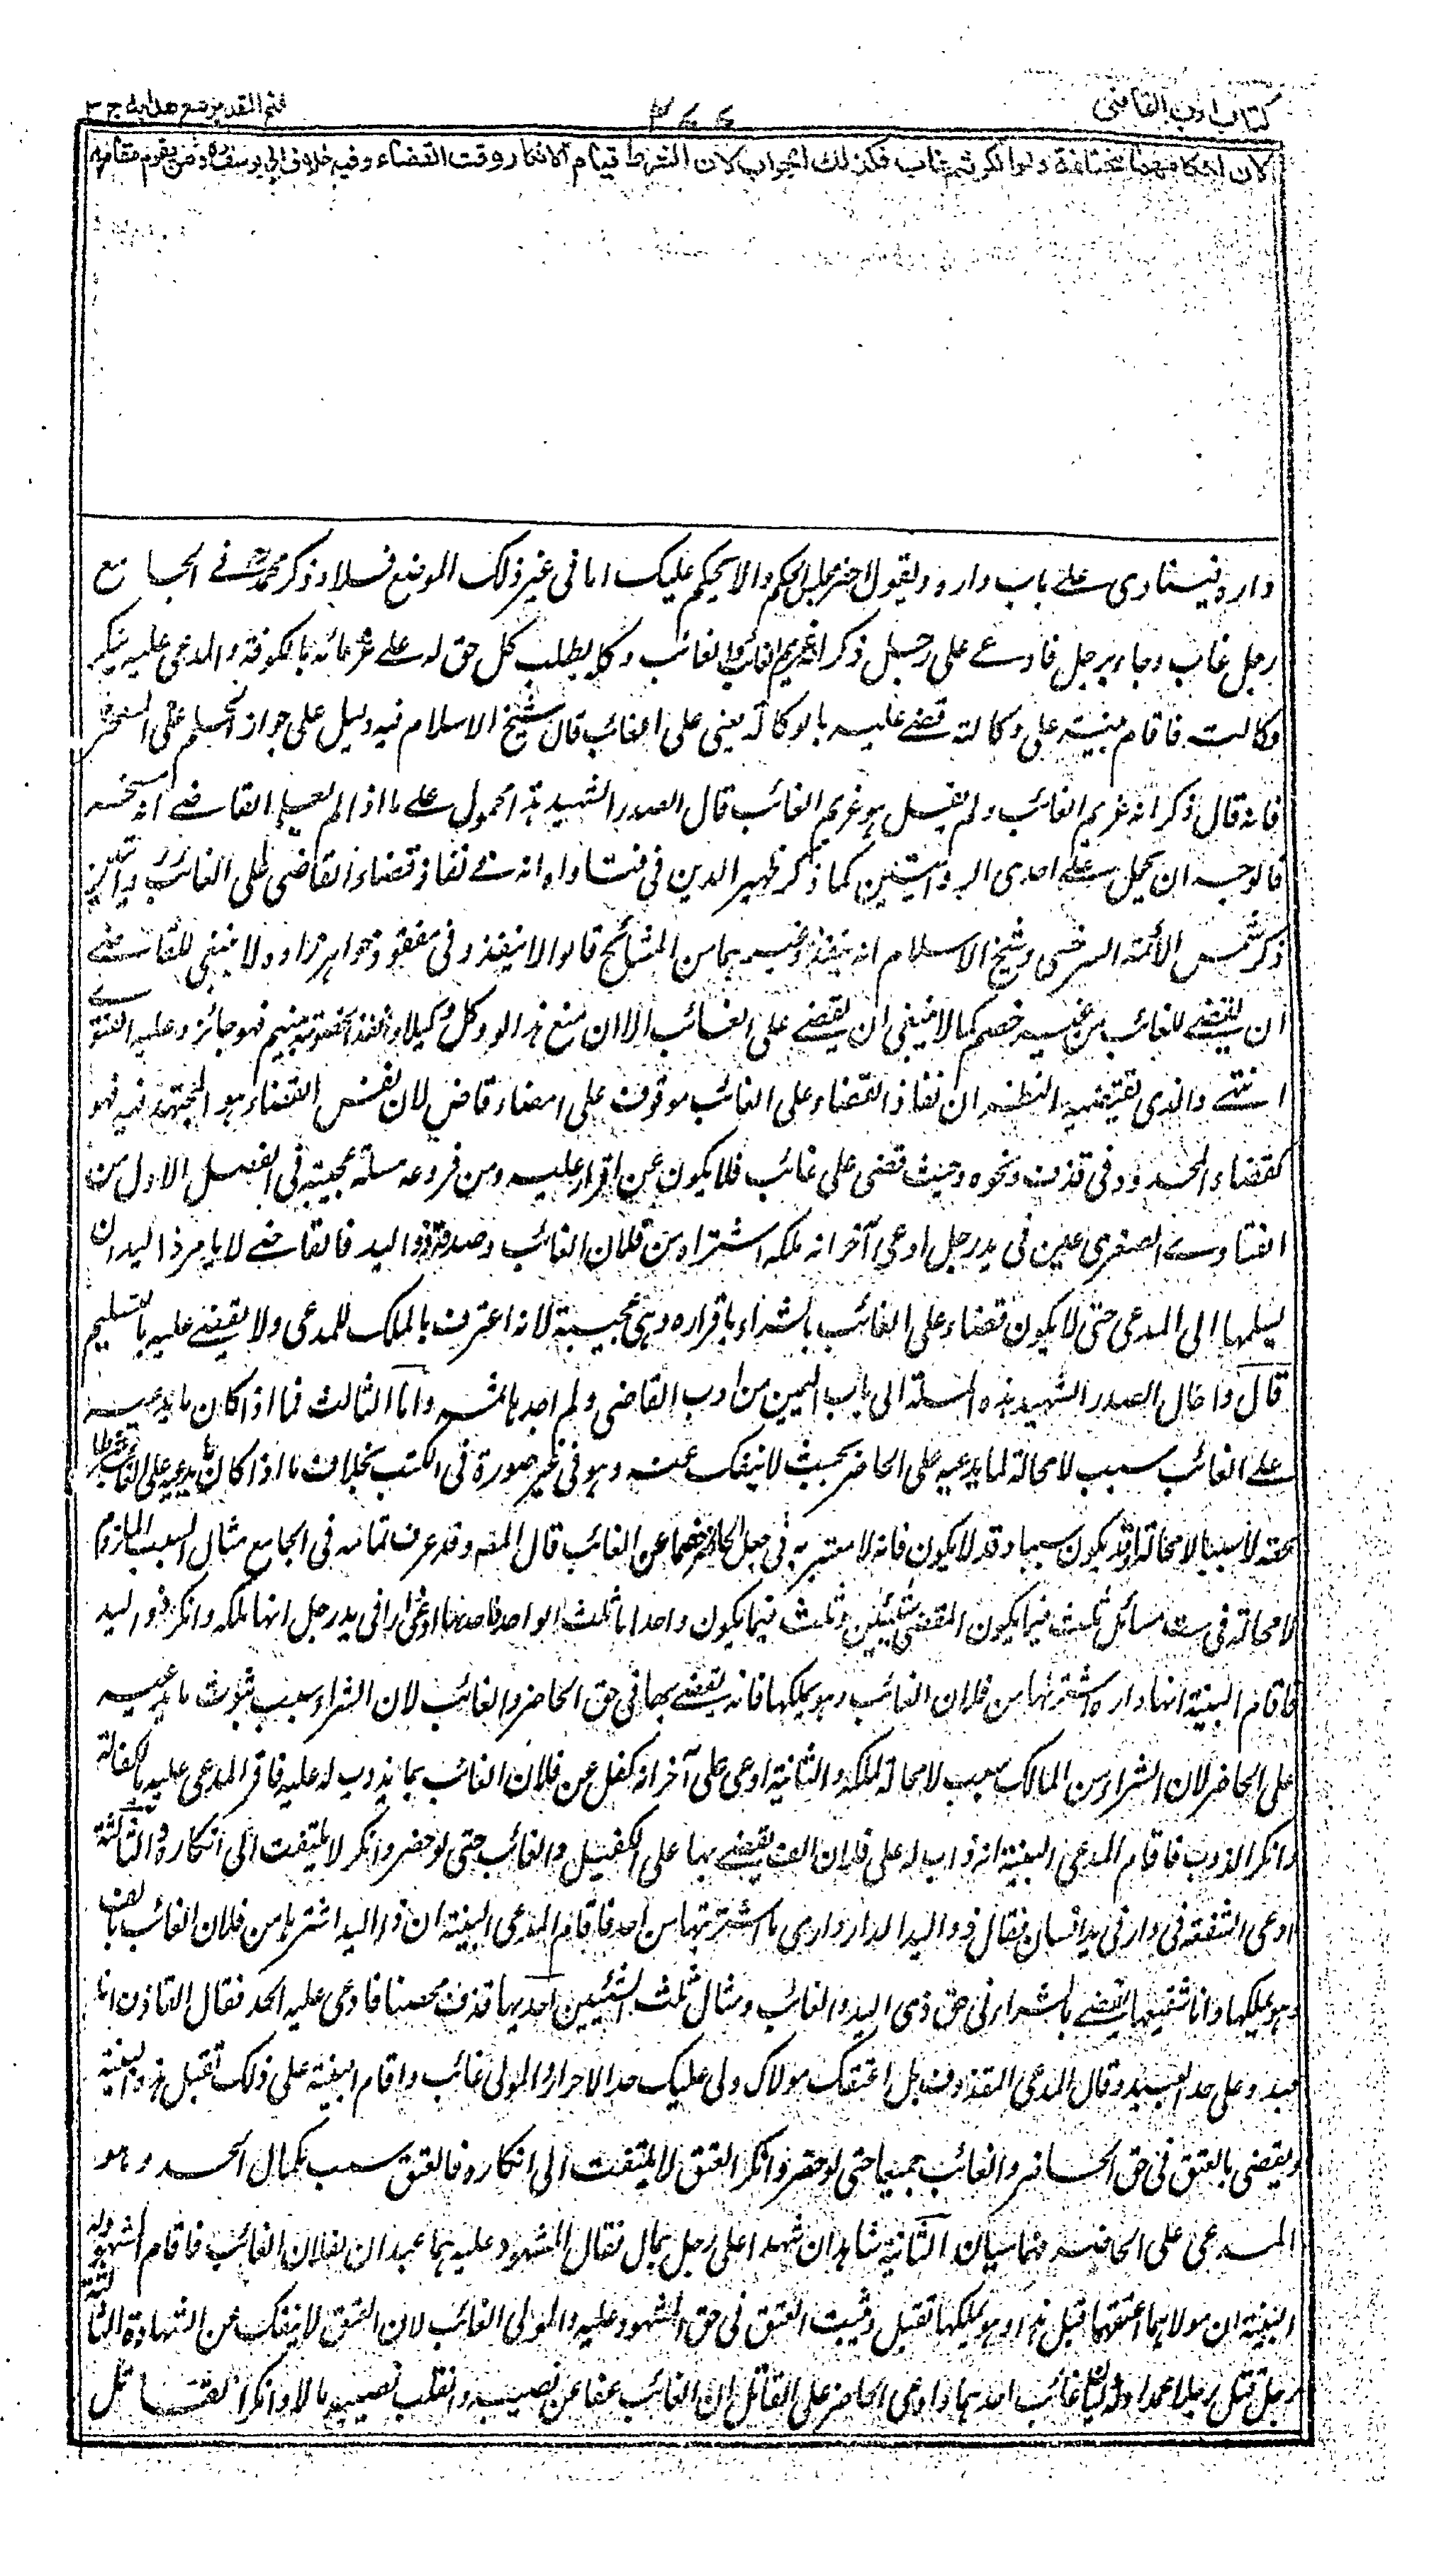 كتاب ادب القاضى
٣٦٦
فتح القدير مع هدايه ج ٣
لان احكامهما مختلفة ولو انكر ثم غاب فكذلك الجواب لان الشرط قيام الانكار وقت القضاء وفيه خلاف ابي يوسف ره ومن يقوم مقامه
داره فينادى على باب داره ويقول احضر مجلس الحكم والا يحكم عليك اما فى غير ذلك الموضع فلا وذكر محمد فى الجامع
رجل غاب وجاء رجل فادعى على رجل ذكر انه غريم الغائب وان الغائب وكله بطلب كل حق له على غرمائه بالكوفة والمدعى عليه ينكر
وكالته فاقام بينة على وكالته قضى عليه بالوكالة يعنى على الغائب قال شيخ الاسلام فيه دليل على جواز الحكم على المسخر
فانه قال ذكر انه غريم الغائب ولم يقل هو غريم الغائب قال الصدر الشهيد هذا محمول على ما اذا لم يعلم القاضى انه مسخر
فالوجه ان يحمل على احدى الروايتين كما ذكر ظهير الدين فى فتاواه انه فى نفاذ قضاء القاضى على الغائب روايتين
ذكر شمس الأئمة السرخسى وشيخ الاسلام انه ينفذ وغيرهما من المشائخ قالوا لا ينفذ وفى مفقود خواهر زاده لا ينبغى للقاضى
ان يقضى للغائب من غير خصم كما لا ينبغى ان يقضى على الغائب الا ان مع هذا لو وكل وكيلا وانفذ الخصومة بينهم فهو جائز وعليه الفتوى
انتهى والذى يقتضيه النظر ان نفاذ القضاء على الغائب موقوف على امضاء قاض لان نفس القضاء هو المجتهد فيه فهو
كقضاء المحدود فى قذف ونحوه وحيث قضى على غائب فلا يكون عن اقرار عليه ومن فروعه مسئلة عجيبة فى الفصل الاول من
الفتاوى الصغرى عين فى يد رجل ادعى آخر انه ملكه اشتراه من فلان الغائب وصدقه ذو اليد فالقاضى لا يامر ذا اليد ان
يسلمها الى المدعى حتى لا يكون قضاء على الغائب بالشراء باقراره وهى عجيبة لانه اعترف بالملك للمدعى ولا يقضى عليه بالتسليم
قال واحال الصدر الشهيد هذه المسئلة الى باب اليمين من ادب القاضى ولم اجدها ثمه واما الثالث فما اذا كان ما يدعيه
على الغائب سبب لا محالة لما يدعيه على الحاضر بحيث لا ينفك عنه وهو فى غير صورة فى الكتب بخلاف ما اذا كان ما يدعيه على الغائب شرطا
لحقه لا سببا لا محالة او قد يكون سببا وقد لا يكون فانه لا معتبر به فى جعل الحاضر خصما عن الغائب قال المص وقد عرف تمامه فى الجامع مثال السبب الملزوم
لا محالة فى ست مسائل ثلث فيما يكون المقضى شيئين وثلث فيما يكون واحدا ما ثلث الواحد فاحدها ادعى دارا فى يد رجل انها ملكه وانكر ذو اليد
فاقام البينة انها داره اشتراها من فلان الغائب وهو يملكها فانه يقضى بها فى حق الحاضر والغائب لان الشراء سبب ثبوت ما يدعيه
على الحاضر لان الشراء من المالك سبب لا محالة لملكه والثانية ادعى على آخر انه كفل عن فلان الغائب بما يذوب له عليه فاقر المدعى عليه بالكفالة
وانكر الذوب فاقام المدعى البينة انه ذاب له على فلان الف يقضى بها على الكفيل والغائب حتى لو حضر وانكر لا يلتفت الى انكاره والثالثة
ادعى الشفعة فى دار فى يد انسان فقال ذو اليد الدار دارى ما اشتريتها من احد فاقام المدعى البينة ان ذا اليد اشتراها من فلان الغائب بالف
وهو يملكها وانا شفيعها يقضى بالشراء فى حق ذى اليد والغائب ومثال ثلث الشيئين احديها قذف محصنا فادعى عليه الحد فقال القاذف انا
عبد وعلى حد العبيد وقال المدعى المقذوف بل اعتقك مولاك ولى عليك حد الاحرار والمولى غائب واقام البينة على ذلك تقبل هذه البينة
ويقضى بالعتق فى حق الحاضر والغائب جميعا حتى لو حضر وانكر العتق لا يلتفت الى انكاره فالعتق سبب بكمال الحد وهو
المدعى على الحاضر فهما سيان الثانية شاهدان شهدا على رجل بمال فقال المشهود عليه هما عبدان لفلان الغائب فاقام المشهود له
البينة ان مولاهما اعتقهما قبل هذا وهو يملكهما تقبل ويثبت العتق فى حق المشهود عليه والمولى الغائب لان العتق لا ينفك عن الشهادة الثالثة
رجل قتل رجلا عمدا وله وليان غائب احدهما وادعى الحاضر على القاتل ان الغائب عفا عن نصيبه وانقلب نصيبه مالا وانكر القاتل